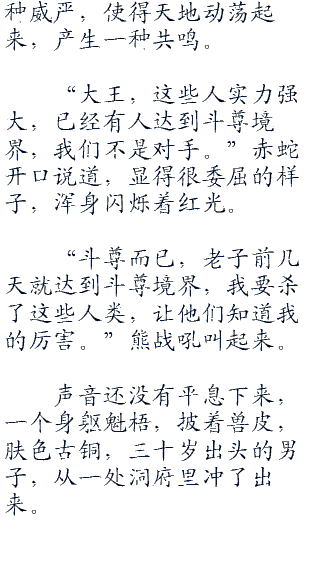 种威严，使得天地动荡起
来，产生一种共鸣。
“大王，这些人实力强
大，已经有人达到斗尊境
界，我们不是对手。”赤蛇
开口说道，显得很委屈的样
子，浑身闪烁着红光。
“斗尊而已，老子前几
天就达到斗尊境界，我要杀
了这些人类，让他们知道我
的厉害。”熊战吼叫起来。
声音还没有平息下来，
一个身躯魁梧，披着兽皮，
肤色古铜，三十岁出头的男
子，从一处洞府里冲了出
来。